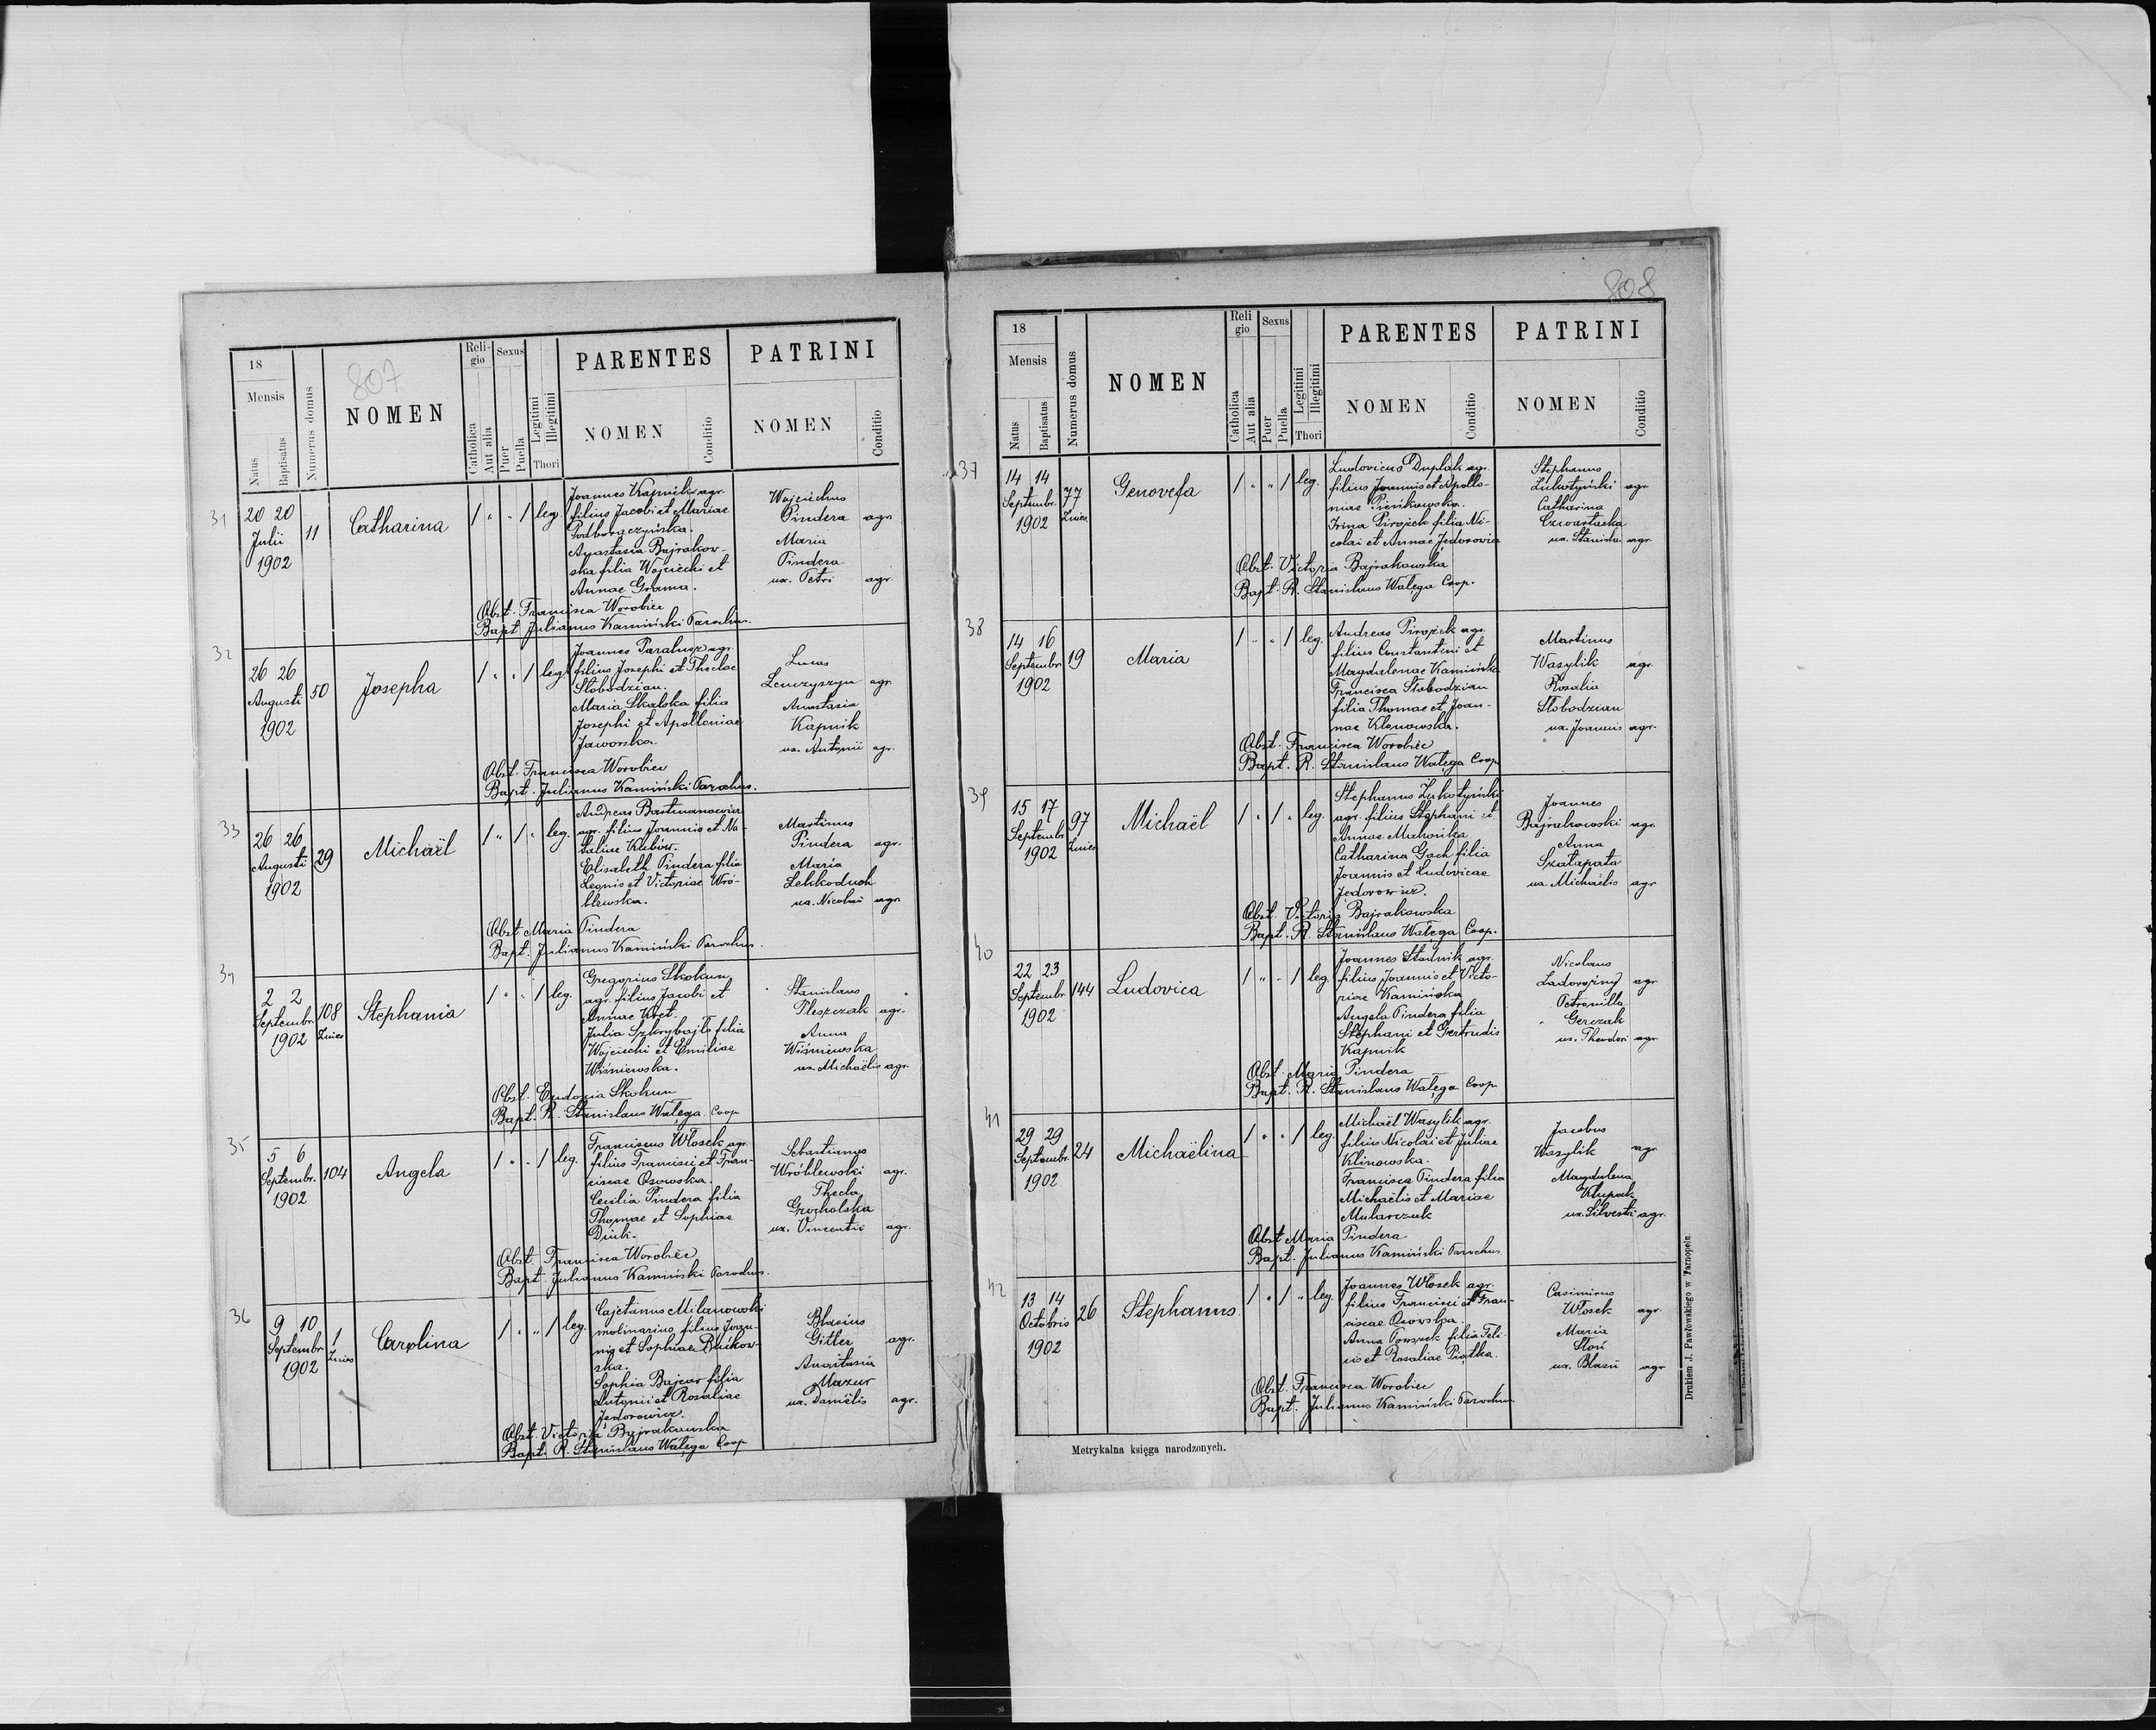 807
18
Mensis
Natus
Baptisatus
Numerus domus
NOMEN
Reli-
gio
Catholica
Aut alia
Sexus
Puer
Puella
Legitimi
Illegitimi
Thori
PARENTES
NOMEN
Conditio
PATRINI
NOMEN
Conditio
31
20 20
Julii
1902
11
Catharina
1 " " 1 leg.
Joannes Kapnik agr.
filius Jacobi et Mariae
Podhoraczyńska.
Anastasia Bajrakow-
ska filia Wojciechi et
Annae Grama.
Wojciechus
Pindera agr.
Maria
Pindera
ux. Petri agr.
Obst. Francisca Worobiec
Bapt. Julianus Kamiński Parochus.
32
26 26
Augusti
1902
50
Josepha
1 " " 1 leg.
Joannes Paralusz agr.
filius Josephi et Theclae
Słobodzian.
Maria Skalska filia
Josephi et Apolloniae
Jaworska.
Lucas
Lewczyszyn agr.
Anastasia
Kapnik
ux. Antonii agr.
Obst. Francisca Worobiec
Bapt. Julianus Kamiński Parochus.
33
26 26
Augusti
1902
29
Michaël
1 " 1 " leg.
Andreas Bartmanowicz
agr. filius Joannis et Na-
taliae Kubów.
Elisabeth Pindera filia
Leonis et Victoriae Wró-
blewska.
Martinus
Pindera agr.
Maria
Lehkoduch
ux. Nicolai agr.
Obst. Maria Pindera
Bapt. Julianus Kamiński Parochus.
34
2 2
Septembr.
1902
108
Znies
Stephania
1 " " 1 leg.
Gregorius Skokun
agr. filius Jacobi et
Annae Kret.
Julia Szkrybajło filia
Wojciechi et Emiliae
Wiśniewska.
Stanislaus
Pleszczak agr.
Anna
Wiśniewska
ux. Michaëlis agr.
Obst. Eudoxia Skokun
Bapt. R. Stanislaus Wałęga Coop
35
5 6
Septembr.
1902
104
Angela
1 " " 1 leg.
Franciscus Włosek agr.
filius Francisci et Fran-
ciscae Osowska.
Cecilia Pindera filia
Thomae et Sophiae
Dziuk.
Sebastianus
Wróblewski agr.
Thecla
Grocholska
ux. Vincentii agr.
Obst. Francisca Worobiec
Bapt. Julianus Kamiński Parochus.
36
9 10
Septembr.
1902
1
Znies
Carolina
1 " " 1 leg.
Cajetanus Milanowski
molinarius filius Joan-
nis et Sophiae Bińkow-
ska.
Sophia Bajcar filia
Antonii et Rosaliae
Jedorowicz.
Blasius
Gitler agr.
Anastasia
Mazur
ux. Daniëlis agr.
Obst. Victoria Bajrakowska
Bapt. R. Stanislaus Wałęga Coop
808
18
Mensis
Natus
Baptisatus
Numerus domus
NOMEN
Reli
gio
Catholica
Aut alia
Sexus
Puer
Puella
Legitimi
Illegitimi
Thori
PARENTES
NOMEN
Conditio
PATRINI
NOMEN
Conditio
37
14 14
Septembr.
1902
77
Znies
Genovefa
1 " " 1 leg.
Ludovicus Duplak agr.
filius Joannis et Apollo-
niae Pieńkowska.
Irina Pirożek filia Ni-
colai et Annae Jedorowicz
Stephanus
Zukotyński agr
Catharina
Czwartacka
ux. Stanisla agr.
Obst. Victoria Bajrakowska
Bapt. R. Stanislaus Wałęga Coop.
38
14 16
Septembr
1902
19
Maria
1 " " 1 leg.
Andreas Pirożek agr.
filius Constantini et
Magdalenae Kamińska
Francisca Słobodzian
filia Thomae et Joan-
nae Klonowska.
Martinus
Wasylik agr.
Rosalia
Słobodzian
ux. Joannis agr.
Obst. Francisca Worobiec
Bapt. R. Stanislaus Wałęga Coop
39
15 17
Septembr
1902
97
Znies
Michaël
1 " 1 " leg.
Stephanus Zukotyński
agr. filius Stephani et
Annae Mahońka
Catharina Gach filia
Joannis et Ludovicae
Jedorowicz.
Joannes
Bajrakowski agr.
Anna
Szałapata
ux. Michaëlis agr
Obst. Victoria Bajrakowska
Bapt. R. Stanislaus Wałęga Coop.
40
22 23
Septembr.
1902
144
Ludovica
1 " " 1 leg.
Joannes Stadnik agr.
filius Joannis et Victo-
riae Kamińska
Angela Pindera filia
Stephani et Gertrudis
Kapnik
Nicolaus
Ladorożny agr
Petronilla
Gerczak
ux. Theodori agr
Obst. Maria Pindera
Bapt. R. Stanislaus Wałęga Coop
41
29 29
Septembr.
1902
24
Michaëlina
1 " " 1 leg.
Michaël Wasylik agr.
filius Nicolai et Juliae
Klinowska.
Francisca Pindera filia
Michaëlis et Mariae
Muharczuk
Jacobus
Wasylik agr
Magdalena
Kłupak
ux. Silvestri agr.
Obst. Maria Pindera
Bapt. Julianus Kamiński Parochus
42
13 14
Octobris
1902
26
Stephanus.
1 " 1 " leg.
Joannes Włosek agr.
filius Francisci et Fran-
ciscae Osowska.
Anna Powszek filia Feli-
cis et Rosaliae Piątka.
Casimirus
Włosek agr.
Maria
Słoń
ux. Blasii agr
Obst. Francisca Worobiec
Bapt. Julianus Kamiński Parochus.
Metrykalna księga narodzonych.
Drukiem J. Pawłowskiego w Tarnopolu.